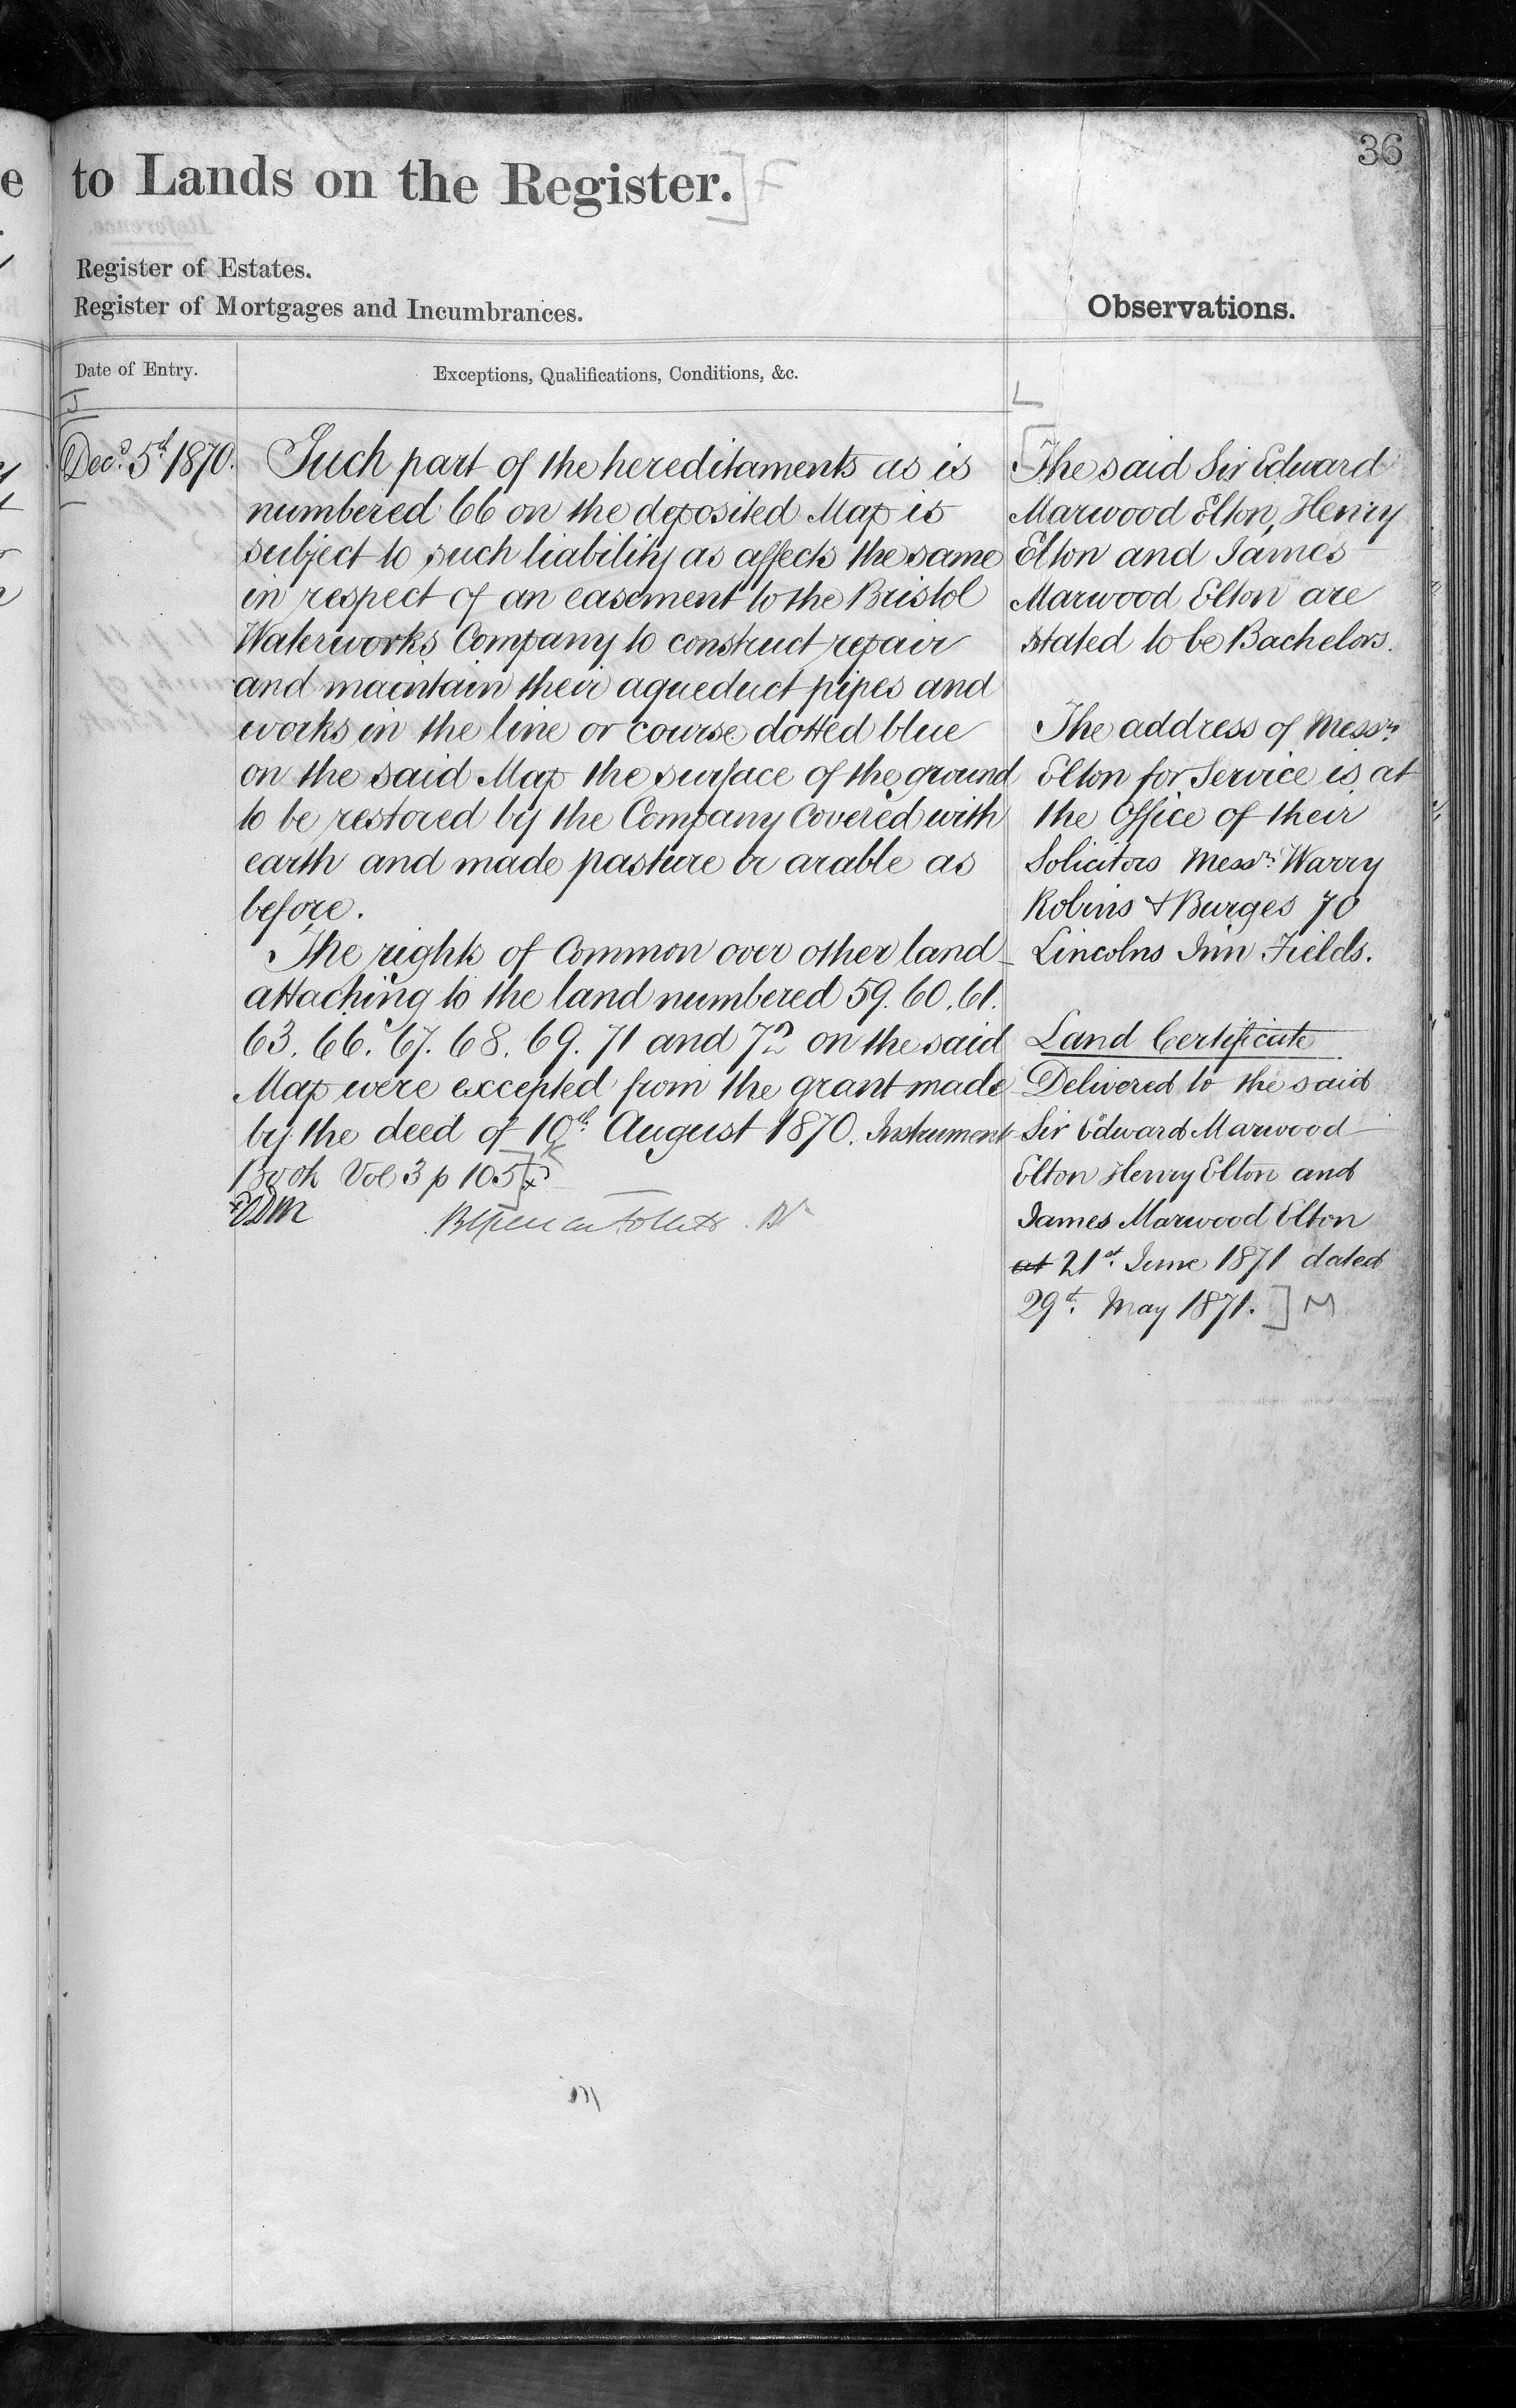 36
to Lands on the Register.] F
Register of Estates.
Register of Mortgages and Incumbrances.
Observations.
Date of Entry.
Exceptions, Qualifications, Conditions, &c.
Decr. 5th 1870.
Such part of the hereditaments as is
numbered 66 on the deposited Map is
subject to such liability as affects the same
in respect of an easement to the Bristol
Waterworks Company to construct repair
and maintain their aqueduct pipes and
works in the line or course dotted blue
on the said Map the surface of the ground
to be restored by the Company Covered with
earth and made pasture or arable as
before.
The rights of Common over other land
attaching to the land numbered 59. 60. 61.
63. 66. 67. 68. 69. 71 and 72 on the said
Map were excepted from the grant made
by the deed of 10th August 1870. Instrument
Book Vol 3 p 105] K
L
[The said Sir Edward
Marwood Elton, Henry
Elton and James
Marwood Elton are
stated to be Bachelors.
The address of Messrs
Elton for Service is at
the Office of their
Solicitors Messrs. Warry
Robins & Burges 70
Lincolns Inn Fields.
Land Certificate
Delivered to the said
Sir Edward Marwood
Elton Henry Elton and
James Marwood Elton
at 21st. June 1871 dated
29th. May 1871.] M